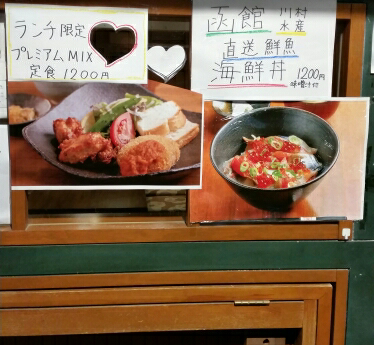 ランチ限定
プレミアムMIX
定食 1200円
函館 川村
水産
直送鮮魚
海鮮丼 1200円
味噌汁付